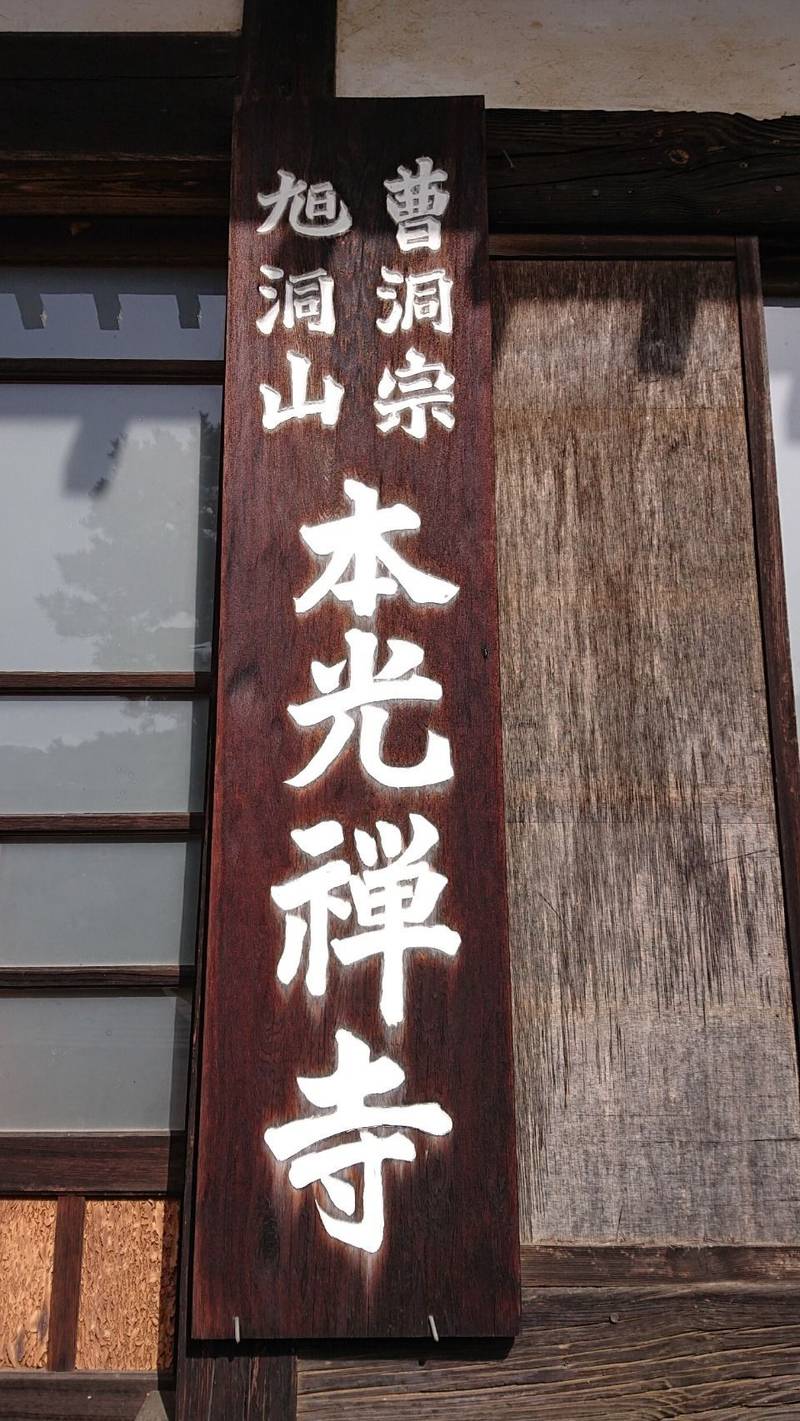 曹洞宗
旭洞山
本光禅寺